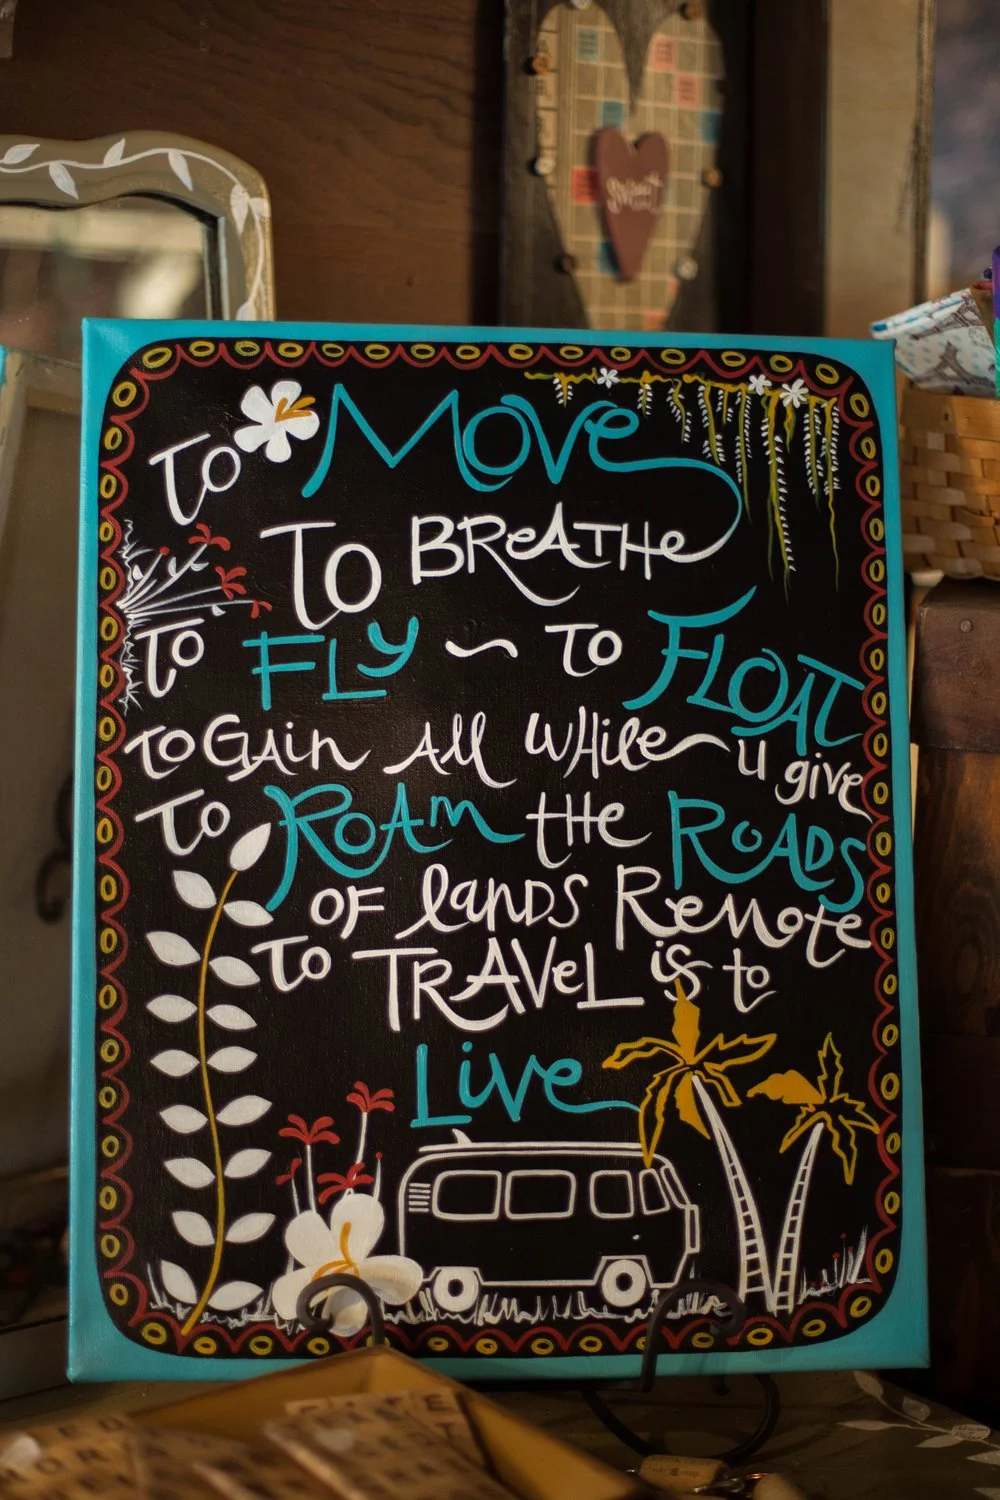 To Move
To BReATHe
To FLy ~ To FLOAT
To GAin All WHile u give
To ROAm tHe ROADS
OF lanDS Remote
To TRAVeL is to
Live